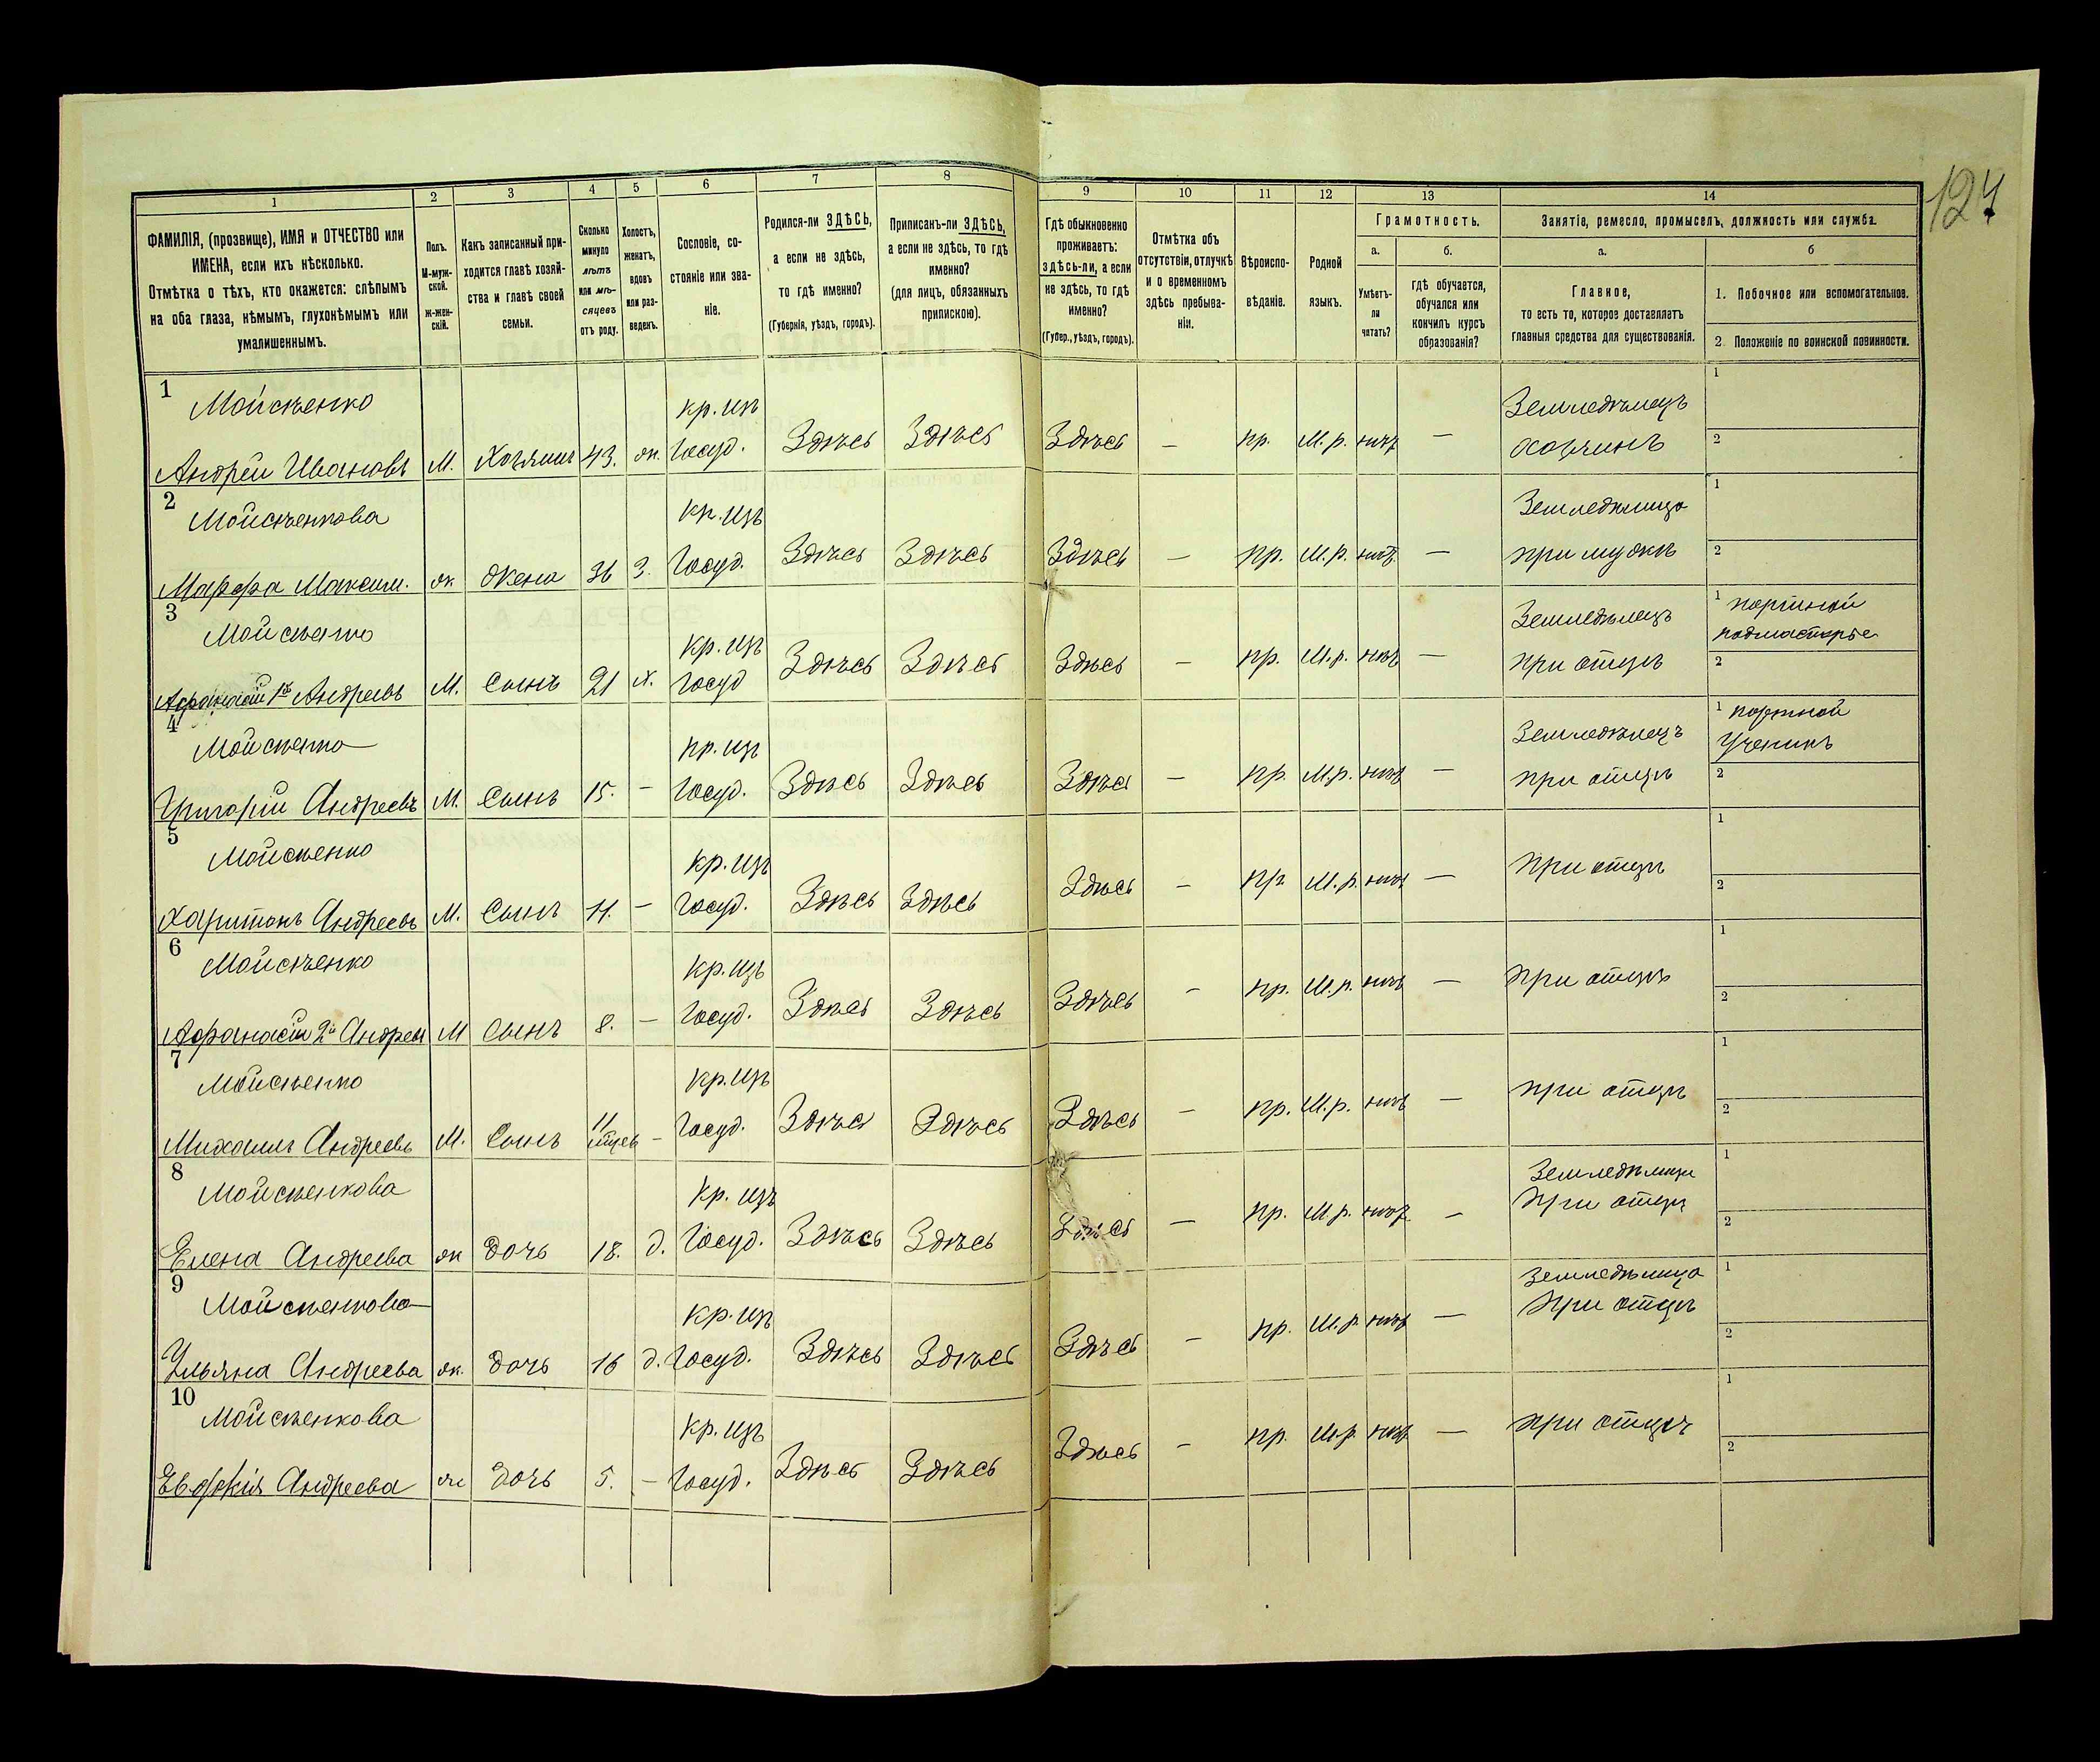 124
1 2 3 4 5 6 7 8 9 10 11 12 13 14
ФАМИЛІЯ, (прозвище), ИМЯ и ОТЧЕСТВО или
ИМЕНА, если ихъ нѣсколько.
Отмѣтка о тѣхъ, кто окажется: слѣпымъ
на оба глаза, нѣмымъ, глухонѣмымъ или
умалишеннымъ.
Полъ.
М-муж-
ской.
Ж-жен-
скій.
Какъ записанный при-
ходится главѣ хозяй-
ства и главѣ своей
семьи.
Сколько
минуло
лѣтъ
или мѣ-
сяцевъ
отъ роду.
Холостъ,
женатъ,
вдовъ
или раз-
веденъ.
Сословіе, со-
стояніе или зва-
ніе.
Родился-ли ЗДѢСЬ,
а если не здѣсь,
то гдѣ именно?
(Губернія, уѣздъ, городъ).
Приписанъ-ли ЗДѢСЬ,
а если не здѣсь, то гдѣ
именно?
(для лицъ, обязанныхъ
припискою).
Гдѣ обыкновенно
проживаетъ:
здѣсь-ли, а если
не здѣсь, то гдѣ
именно?
(Губер., уѣздъ, городъ).
Отмѣтка объ
отсутствіи, отлучкѣ
и о временномъ
здѣсь пребыва-
ніи.
Вѣроиспо-
вѣданіе.
Родной
языкъ.
Грамотность.
а.
Умѣетъ-
ли
читать?
б.
гдѣ обучается,
обучался или
кончилъ курсъ
образованія?
Занятіе, ремесло, промыселъ, должность или служба.
а.
Главное,
то есть то, которое доставляетъ
главныя средства для существованія.
б
1. Побочное или вспомогательное.
2. Положеніе по воинской повинности.
1 Мойсѣенко кр. изъ Земледѣлецъ 1
Андрей Ивановъ М. Хозяинъ 43. ж. Госуд. Здѣсь Здѣсь Здѣсь — пр. М. р. нѣтъ — хозяинъ 2
2 Мойсѣенкова кр. изъ Земледѣлица 1
Марфа Максим. ж. жена 36 З. Госуд. Здѣсь Здѣсь Здѣсь — пр. М. р. нѣтъ — при мужѣ 2
3 Мойсѣенко кр. изъ Земледѣлецъ 1 портной
подмастерье
Афанасій 1й Андреевъ М. Сынъ 21 х. Госуд Здѣсь Здѣсь Здѣсь — пр. М. р. нѣтъ — при отцѣ 2
4 Мойсѣенко кр. изъ Земледѣлецъ 1 портной
Ученикъ
Григорій Андреевъ М. Сынъ 15. — Госуд. Здѣсь Здѣсь Здѣсь — пр. М. р. нѣтъ — при отцѣ 2
5 Мойсѣенко кр. изъ 1
Харитонъ Андреевъ М. Сынъ 11. — Госуд. Здѣсь Здѣсь Здѣсь — пр. М. р. нѣтъ — при отцѣ 2
6 Мойсѣенко кр. изъ 1
Афанасій 2й Андреев М Сынъ 8. — Госуд. Здѣсь Здѣсь Здѣсь — пр. М. р. нѣтъ — при отцѣ 2
7 Мойсѣенко кр. изъ 1
Михаилъ Андреевъ М. Сынъ 11 мѣсяцевъ — Госуд. Здѣсь Здѣсь Здѣсь — пр. М. р. нѣтъ — при отцѣ 2
8 Мойсѣенкова кр. изъ Земледѣлица 1
Елена Андреева ж дочь 18. д. Госуд. Здѣсь Здѣсь Здѣсь — пр. М р. нѣтъ — при отцѣ 2
9 Мойсѣенкова кр. изъ Земледѣлица 1
Ульяна Андреева ж. дочь 16 д. Госуд. Здѣсь Здѣсь Здѣсь — пр. М. р нѣтъ — при отцѣ 2
10 Мойсѣенкова кр. изъ 1
Андреева ж дочь 5. — Госуд. Здѣсь Здѣсь Здѣсь — пр. М. р. нѣтъ — при отцѣ 2